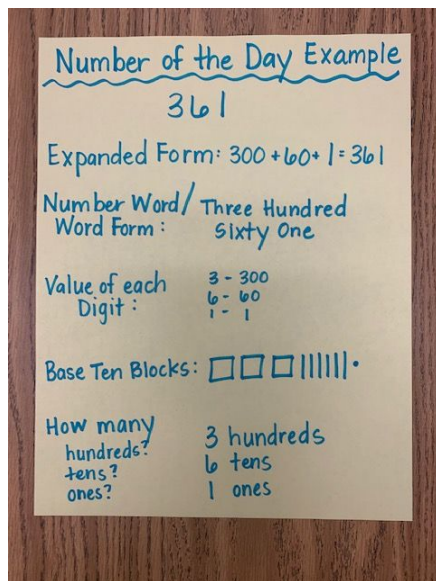 Number of the Day Example
361
Expanded Form: 300 + 60 + 1 = 361
Number Word/ Three Hundred
Word Form: Sixty One
Value of each 3 - 300
Digit: 6 - 60
1 - 1
Base Ten Blocks:
How many
hundreds? 3 hundreds
tens? 6 tens
ones? 1 ones